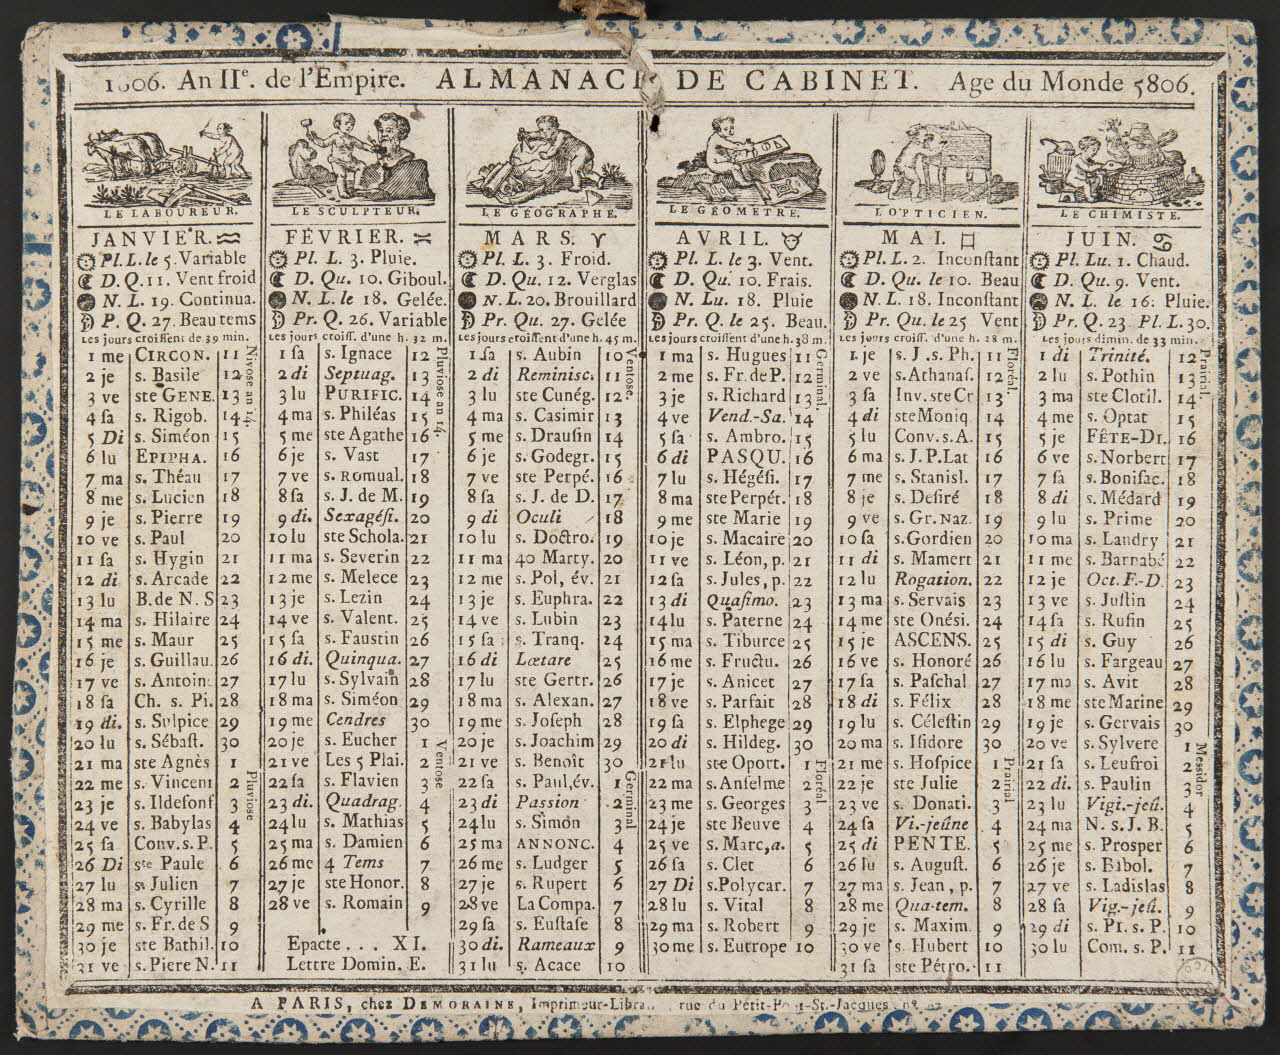 1806. An IIe. de l'Empire. ALMANACH DE CABINET. Age du Monde 5806.
LE LABOUREUR.
JANVIER.
Pl. L. le 5. Variable
D. Q. 11. Vent froid
N. L. 19. Continua.
P. Q. 27. Beau tems
Les jours croiſſent de 39 min.
Nivose an 14.
1 me CIRCON. 11
2 je s. Basile 12
3 ve ste GENE. 13
4 ſa s. Rigob. 14
5 Di s. Siméon 15
6 lu EPIPHA. 16
7 ma s. Théau 17
8 me s. Lucien 18
9 je s. Pierre 19
10 ve s. Paul 20
11 ſa s. Hygin 21
12 di s. Arcade 22
13 lu B. de N. S 23
14 ma s. Hilaire 24
15 me s. Maur 25
16 je s. Guillau. 26
17 ve s. Antoine 27
18 ſa Ch. s. Pi. 28
19 di. s. Sulpice 29
20 lu s. Sébaſt. 30
Pluviose
21 ma ste Agnès 1
22 me s. Vincent 2
23 je s. Ildefonſ 3
24 ve s. Babylas 4
25 ſa Conv. s. P. 5
26 Di ste Paule 6
27 lu s. Julien 7
28 ma s. Cyrille 8
29 me s. Fr. de S 9
30 je ste Bathil. 10
31 ve s. Piere N. 11
LE SCULPTEUR.
FÉVRIER.
Pl. L. 3. Pluie.
D. Qu. 10. Giboul.
N. L. le 18. Gelée.
Pr. Q. 26. Variable
Les jours croiſſ. d'une h. 32 m.
Pluviose an 14.
1 ſa s. Ignace 12
2 di Septuag. 13
3 lu PURIFIC. 14
4 ma s. Philéas 15
5 me ste Agathe 16
6 je s. Vast 17
7 ve s. ROMUAL. 18
8 ſa s. J. de M. 19
9 di. Sexagéſi. 20
10 lu ste Schola. 21
11 ma s. Severin 22
12 me s. Melece 23
13 je s. Lezin 24
14 ve s. Valent. 25
15 ſa s. Faustin 26
16 di. Quinqua. 27
17 lu s. Sylvain 28
18 ma s. Siméon 29
19 me Cendres 30
Ventose
20 je s. Eucher 1
21 ve Les 5 Plai. 2
22 ſa s. Flavien 3
23 di. Quadrag. 4
24 lu s. Mathias 5
25 ma s. Damien 6
26 me 4 Tems 7
27 je ste Honor. 8
28 ve s. Romain 9
Epacte . . . XI.
Lettre Domin. E.
LE GÉOGRAPHE.
MARS.
Pl. L. 3. Froid.
D. Qu. 12. Verglas
N. L. 20. Brouillard
Pr. Qu. 27. Gelée
Les jours croiſſent d'une h. 45 m.
Ventose.
1 ſa s. Aubin 10
2 di Reminisc. 11
3 lu ste Cunég. 12
4 ma s. Casimir 13
5 me s. Drauſin 14
6 je s. Godegr. 15
7 ve ste Perpé. 16
8 ſa s. J. de D. 17
9 di Oculi 18
10 lu s. Doctro. 19
11 ma 40 Marty. 20
12 me s. Pol, év. 21
13 je s. Euphra. 22
14 ve s. Lubin 23
15 ſa s. Tranq. 24
16 di Lœtare 25
17 lu ste Gertr. 26
18 ma s. Alexan. 27
19 me s. Joſeph 28
20 je s. Joachim 29
21 ve s. Benoît 30
Germinal
22 ſa s. Paul, év. 1
23 di Passion 2
24 lu s. Simon 3
25 ma ANNONC. 4
26 me s. Ludger 5
27 je s. Rupert 6
28 ve La Compa. 7
29 ſa s. Euſtaſe 8
30 di. Rameaux 9
31 lu s. Acace 10
LE GÉOMETRE.
AVRIL.
Pl. L. le 3. Vent.
D. Qu. 10. Frais.
N. Lu. 18. Pluie
Pr. Q. le 25. Beau.
Les jours croiſſent d'une h. 38 m.
Germinal.
1 ma s. Hugues 11
2 me s. Fr. de P. 12
3 je s. Richard 13
4 ve Vend.-Sa. 14
5 ſa s. Ambro. 15
6 di PASQU. 16
7 lu s. Hégéſi. 17
8 ma ste Perpét. 18
9 me ste Marie 19
10 je s. Macaire 20
11 ve s. Léon, p. 21
12 ſa s. Jules, p. 22
13 di Quaſimo. 23
14 lu s. Paterne 24
15 ma s. Tiburce 25
16 me s. Fructu. 26
17 je s. Anicet 27
18 ve s. Parfait 28
19 ſa s. Elphege 29
20 di s. Hildeg. 30
Floréal
21 lu ste Oport. 1
22 ma s. Anſelme 2
23 me s. Georges 3
24 je ste Beuve 4
25 ve s. Marc, a. 5
26 ſa s. Clet 6
27 Di s. Polycar. 7
28 lu s. Vital 8
29 ma s. Robert 9
30 me s. Eutrope 10
L'OPTICIEN.
MAI.
Pl. L. 2. Inconſtant
D. Qu. le 10. Beau
N. L. 18. Inconſtant
Pr. Qu. le 25 Vent
Les jours croiſſ. d'une h. 28 m.
Floréal.
1. je s. J. s. Ph. 11
2 ve s. Athanaſ. 12
3 ſa Inv. ste Cr 13
4 di ste Moniq 14
5 lu Conv. s. A. 15
6 ma s. J. P. Lat 16
7 me s. Stanisl. 17
8 je s. Deſiré 18
9 ve s. Gr. NAZ. 19
10 ſa s. Gordien 20
11 di s. Mamert 21
12 lu Rogation. 22
13 ma s. Servais 23
14 me ste Onési. 24
15 je ASCENS. 25
16 ve s. Honoré 26
17 ſa s. Paſchal 27
18 di s. Félix 28
19 lu s. Céleſtin 29
20 ma s. Iſidore 30
Prairial
21 me s. Hospice 1
22 je ste Julie 2
23 ve s. Donati. 3
24 ſa Vi.-jeûne 4
25 di PENTE. 5
26 lu s. Auguſt. 6
27 ma s. Jean, p. 7
28 me Qua-tem. 8
29 je s. Maxim. 9
30 ve s. Hubert 10
31 ſa ste Pétro. 11
LE CHIMISTE.
JUIN.
Pl. Lu. 1. Chaud.
D. Qu. 9. Vent.
N. L. le 16. Pluie.
Pr. Q. 23. Pl. L. 30.
Les jours dimin. de 33 min.
Prairial.
1 di Trinité. 12
2 lu s. Pothin 13
3 ma ste Clotil. 14
4 me s. Optat 15
5 je FÊTE-DI. 16
6 ve s. Norbert 17
7 ſa s. Boniſac. 18
8 di s. Médard 19
9 lu s. Prime 20
10 ma s. Landry 21
11 me s. Barnabé 22
12 je Oct. F.-D. 23
13 ve s. Juſtin 24
14 ſa s. Rufin 25
15 di s. Guy 26
16 lu s. Fargeau 27
17 ma s. Avit 28
18 me ste Marine 29
19 je s. Gervais 30
Messidor
20 ve s. Sylvere 1
21 ſa s. Leufroi 2
22 di. s. Paulin 3
23 lu Vigi.-jeû. 4
24 ma N. s. J. B. 5
25 me s. Prosper 6
26 je s. Babol. 7
27 ve s. Ladislas 8
28 ſa Vig.-jeû. 9
29 di s. Pi. s. P. 10
30 lu Com. s. P. 11
A PARIS, chez DEMORAINE, Imprimeur-Libra. , rue du Petit-Pont-St.-Jacques, nº.